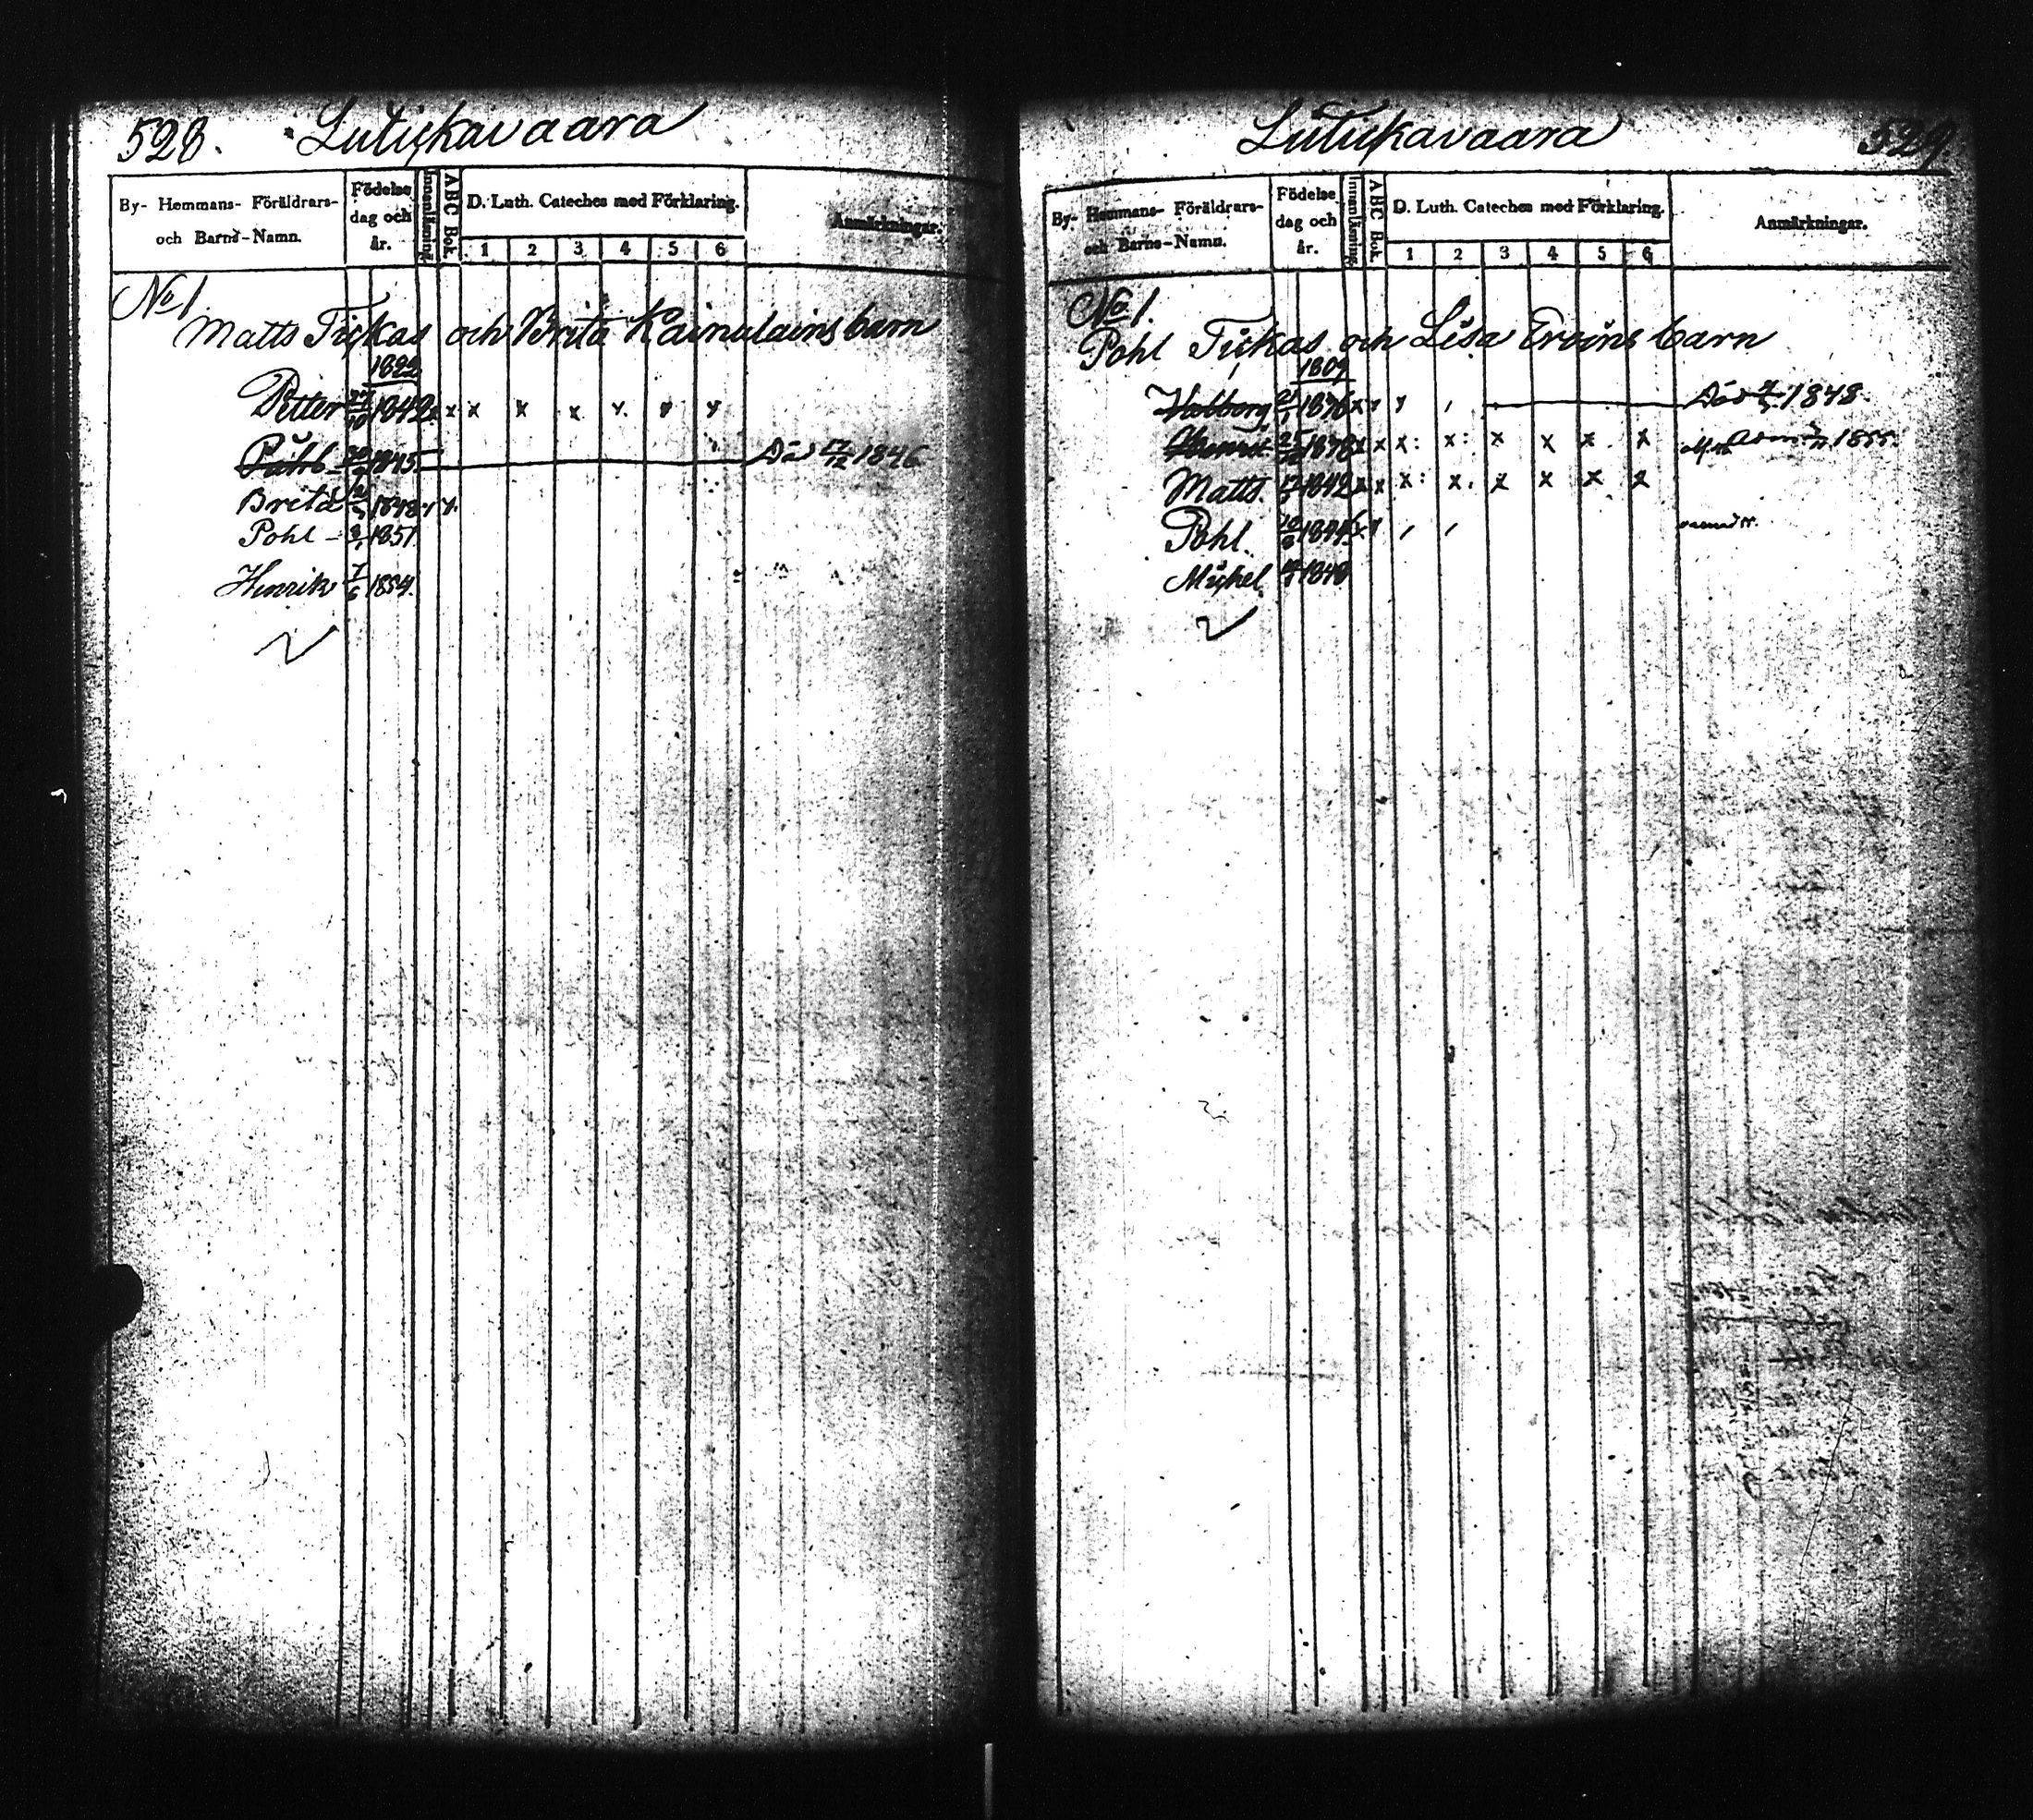 528. Lutickavaara
By- Hemmans- Föräldrars- och Barns-Namn.
Födelse dag och år.
Innanläsning.
ABC Bok.
D. Luth. Cateches med Förklaring.
1 2 3 4 5 6
Anmärkningar.
No 1
Matts Tickas och Brita Kainulains barn
1822
Petter 1842 x x x x x x x
1845 Död 17/12 1846
Brita 1848
Pohl 1851
Henrik 7/6 1854
Lutickavaara 529
By- Hemmans- Föräldrars- och Barns-Namn.
Födelse dag och år.
Innanläsning.
ABC Bok.
D. Luth. Cateches med Förklaring.
1 2 3 4 5 6
Anmärkningar.
No 1.
Pohl Tickas och Lisa Eroins barn
1809
Walborg 21/1 1836 Död 1848
1838 x x x: x: x x x x 1855.
Matts 1842 x x x: x. x x x x
Pohl 1844
Michel 1848